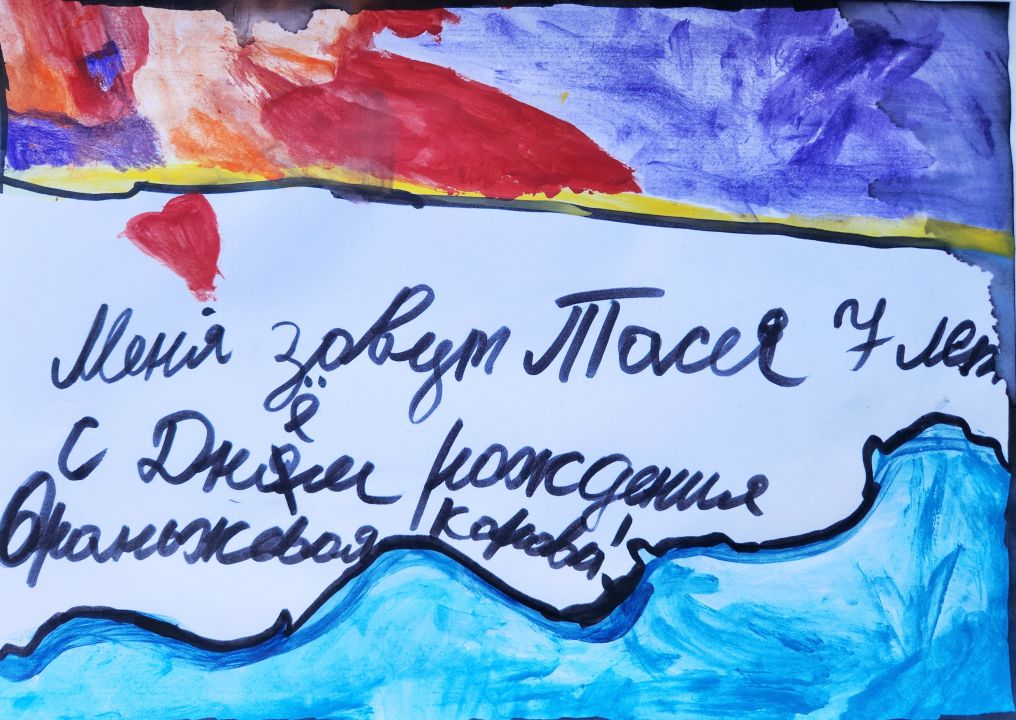 Меня зовут Тася 7 лет
С Днём рождения
Ораньжевая корова!